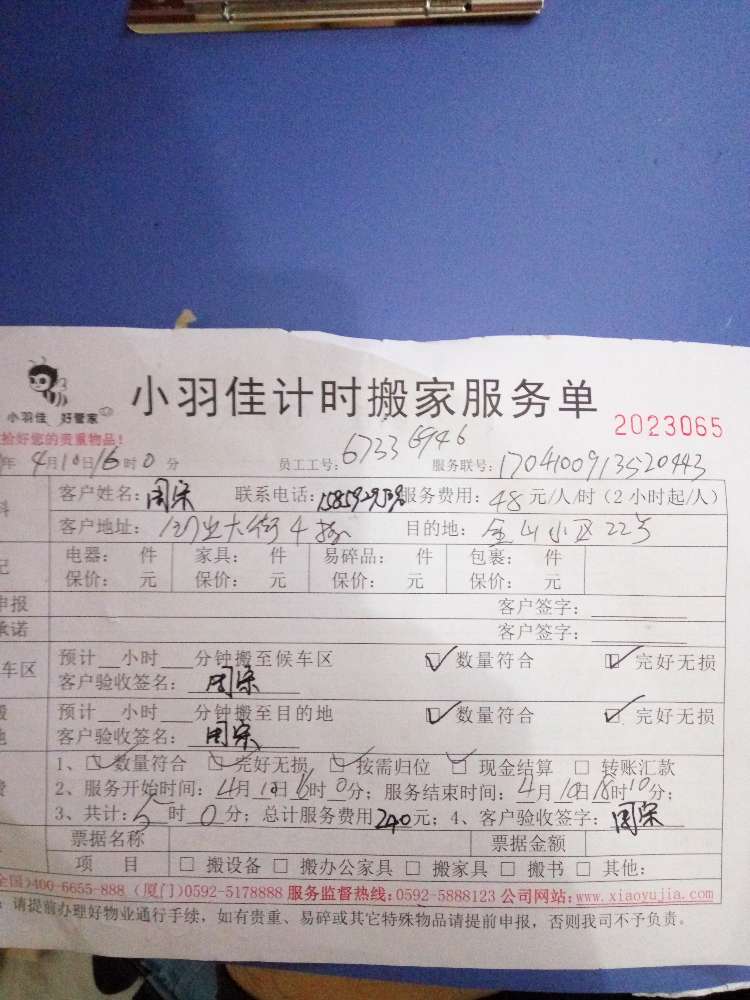 小羽佳 好管家
小羽佳计时搬家服务单
2023065
拾好您的贵重物品！
年4月10日16时0分 员工工号：67336946 服务联号：1704100913520443
客户姓名：周宋 联系电话： 服务费用：48元/人/时（2小时起/人）
客户地址：大街4 目的地：金山小区22号
电器： 件 家具： 件 易碎品： 件 包裹： 件
保价： 元 保价： 元 保价： 元 保价： 元
申报 客户签字：
承诺 客户签字：
车区 预计__小时___分钟搬至候车区 数量符合 完好无损
客户验收签名：周宋
预计__小时___分钟搬至目的地 数量符合 完好无损
地 客户验收签名：周宋
1、数量符合 完好无损 按需归位 现金结算 转账汇款
费 2、服务开始时间：4月10日16时0分；服务结束时间：4月10日18时10分；
3、共计：5时0分；总计服务费用240元；4、客户验收签字：周宋
票据名称 票据金额
项 目 搬设备 搬办公家具 搬家具 搬书 其他：
全国)400-6655-888 (厦门)0592-5178888 服务监督热线:0592-5888123 公司网站:www.xiaoyujia.com
：请提前办理好物业通行手续，如有贵重、易碎或其它特殊物品请提前申报，否则我司不予负责。